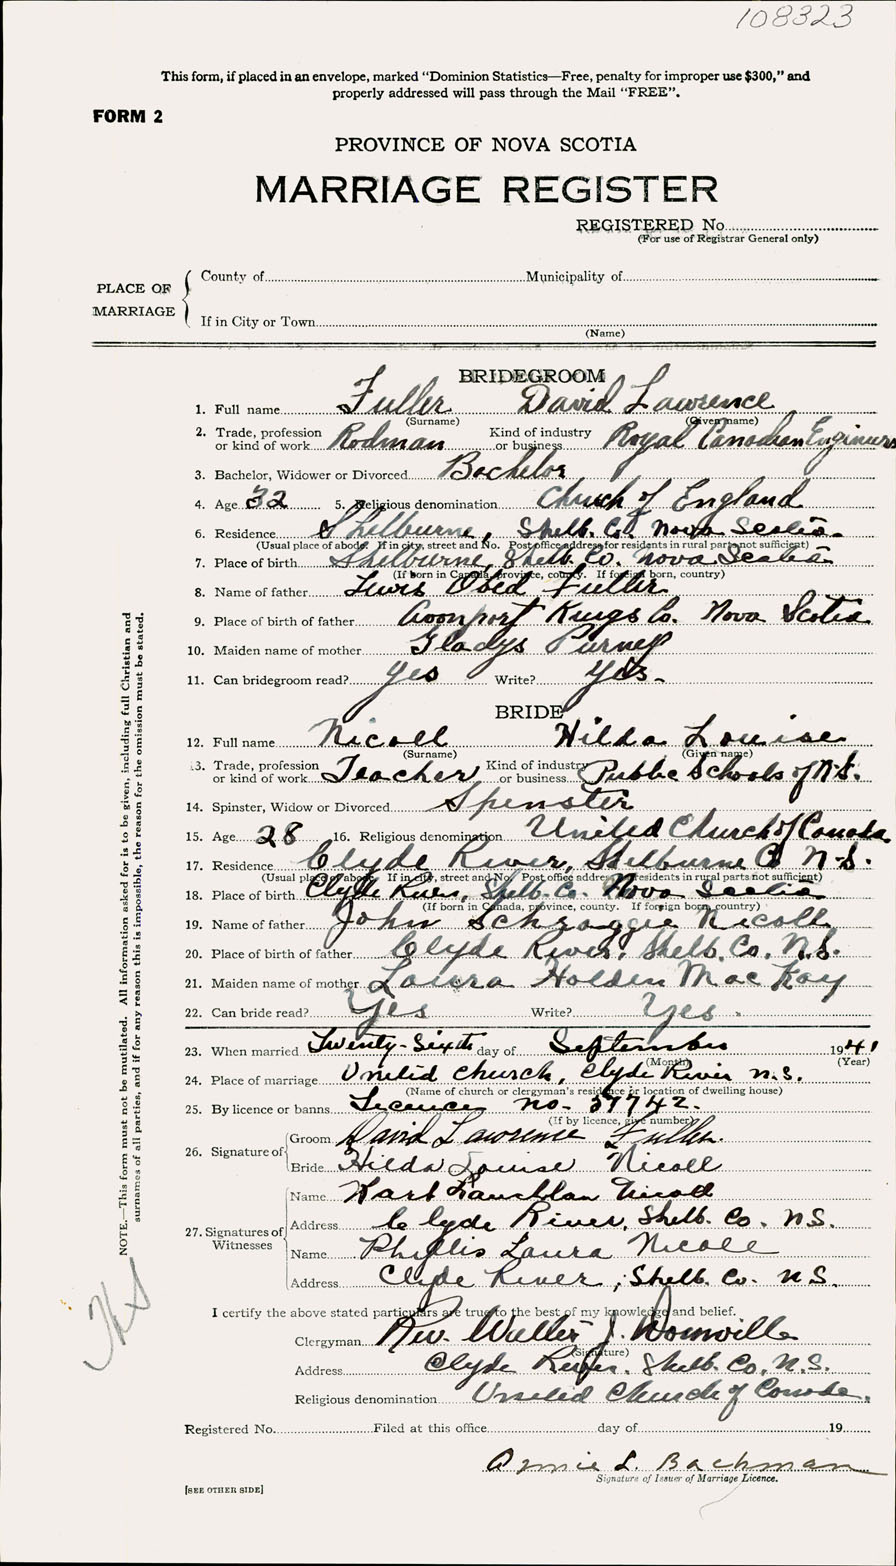 108323
This form, if placed in an envelope, marked “Dominion Statistics—Free, penalty for improper use $300,” and
properly addressed will pass through the Mail “FREE”.
FORM 2
PROVINCE OF NOVA SCOTIA
MARRIAGE REGISTER
REGISTERED No
(For use of Registrar General only)
PLACE OF MARRIAGE
County of Municipality of
If in City or Town
(Name)
BRIDEGROOM
1. Full name Fuller David Lawrence
(Surname) (Given name)
2. Trade, profession or kind of work Rodman Kind of industry or business Royal Canadian Engineers
3. Bachelor, Widower or Divorced Bachelor
4. Age 32 5. Religious denomination Church of England
6. Residence Shelburne, Shelb. Co. Nova Scotia
(Usual place of abode. If in city, street and No. Post office address for residents in rural parts not sufficient)
7. Place of birth Shelburne, Shelb. Co. Nova Scotia
(If born in Canada, province, county. If foreign born, country)
8. Name of father Lewis Obed Fuller
9. Place of birth of father Avonport Kings Co. Nova Scotia
10. Maiden name of mother Gladys Purney
11. Can bridegroom read? Yes Write? Yes.
BRIDE
12. Full name Nicoll Hilda Louise
(Surname) (Given name)
13. Trade, profession or kind of work Teacher Kind of industry or business Public Schools of N.S.
14. Spinster, Widow or Divorced Spinster
15. Age 28 16. Religious denomination United Church of Canada
17. Residence Clyde River, Shelburne Co N.S.
(Usual place of abode. If in city, street and No. Post office address for residents in rural parts not sufficient)
18. Place of birth Clyde River, Shelb. Co. Nova Scotia
(If born in Canada, province, county. If foreign born, country)
19. Name of father John Schraggie Nicoll
20. Place of birth of father Clyde River, Shelb. Co. N.S.
21. Maiden name of mother Laura Holden MacKay
22. Can bride read? Yes Write? Yes.
23. When married Twenty-Sixth day of September 1941
(Month) (Year)
24. Place of marriage United Church, Clyde River N.S.
(Name of church or clergyman's residence or location of dwelling house)
25. By licence or banns Licence no. 37742.
(If by licence, give number)
26. Signature of
Groom David Lawrence Fuller
Bride Hilda Louise Nicoll
27. Signatures of Witnesses
Name Karl Lauchlan Nicoll
Address Clyde River, Shelb. Co. N.S.
Name Phyllis Laura Nicoll
Address Clyde River, Shelb. Co. N.S.
I certify the above stated particulars are true to the best of my knowledge and belief.
Clergyman Rev. Walter J.
(Signature)
Address Clyde River, Shelb. Co, N.S.
Religious denomination United Church of Canada.
Registered No. Filed at this office day of 19
Annie L. Bachman
Signature of Issuer of Marriage Licence.
[SEE OTHER SIDE]
NOTE.—This form must not be mutilated. All information asked for is to be given, including full Christian and
surnames of all parties, and if for any reason this is impossible, the reason for the omission must be stated.